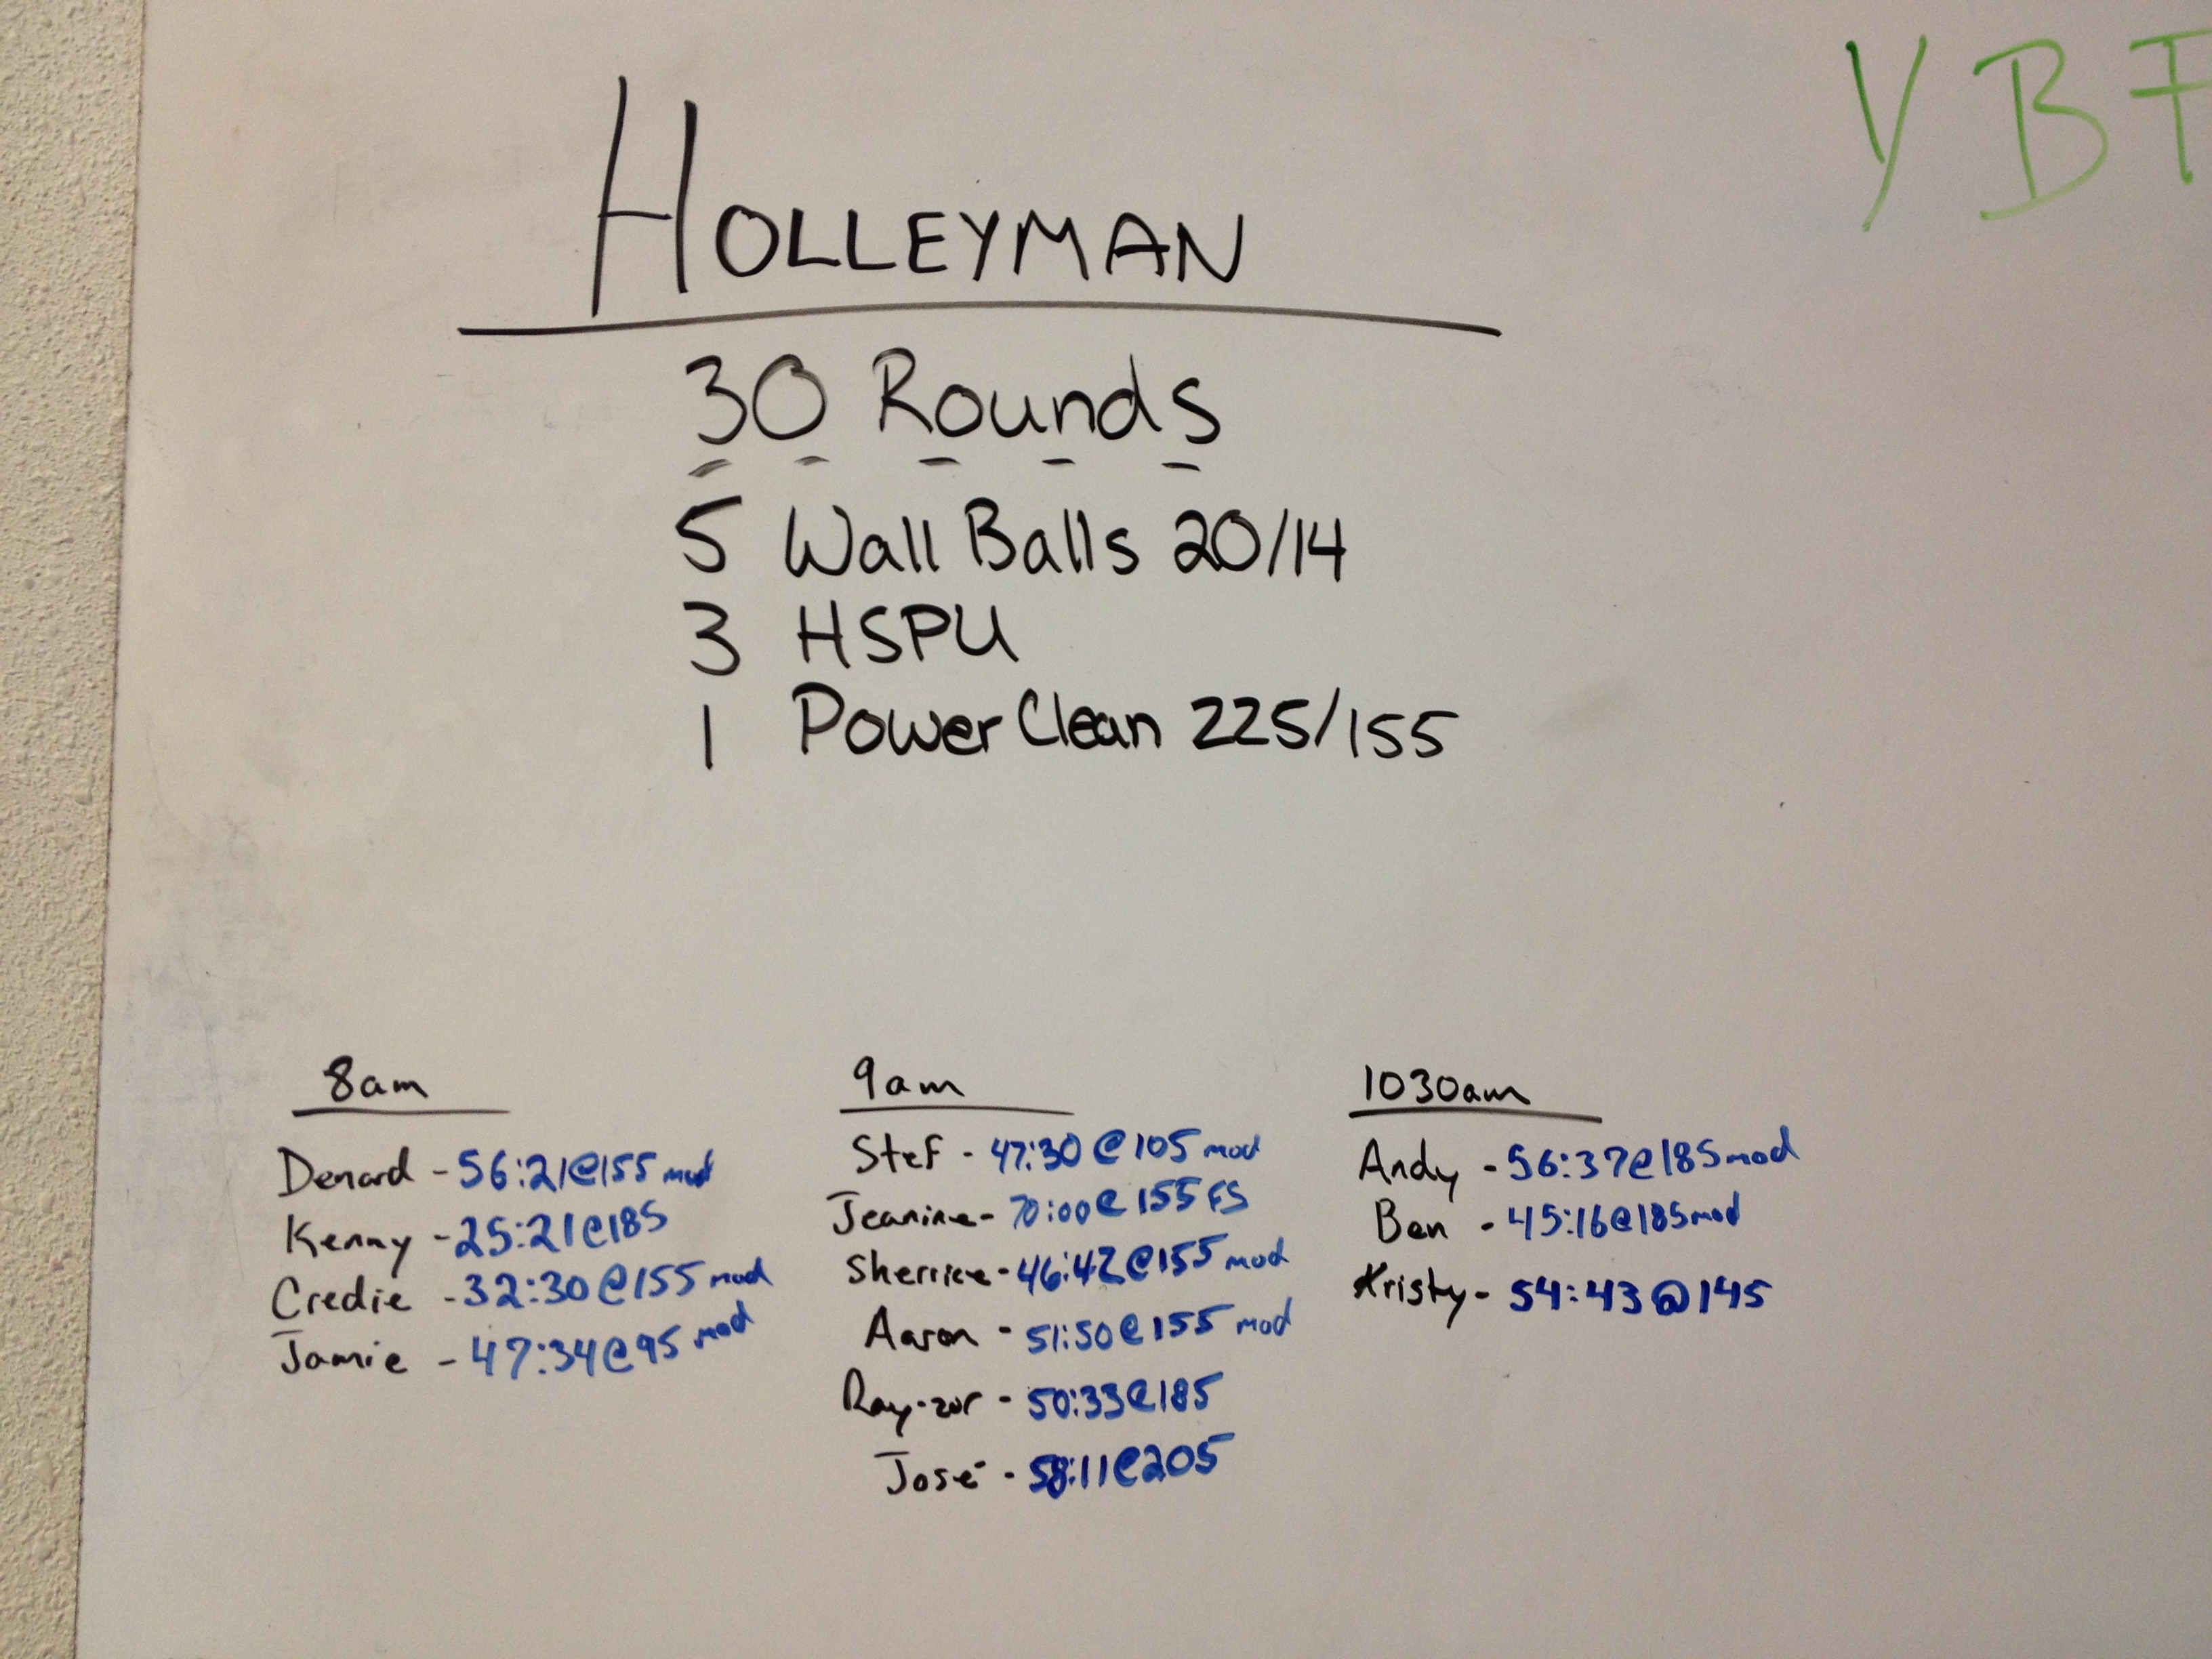 YBF
HOLLEYMAN
30 Rounds
5 Wall Balls 20/14
3 HSPU
1 Power Clean 225/155
8am
Denard - 56:21@155 mod
Kenny - 25:21@185
Credie - 32:30@155 mod
Jamie - 47:34@95 mod
9am
Stef - 47:30@105 mod
Jeanine - 70:00@155 FS
Sherrice - 46:42@155 mod
Aaron - 51:50@155 mod
Ray-zor - 50:33@185
José - 58:11@205
1030am
Andy - 56:37@185mod
Ben - 45:16@185mod
Kristy - 54:43@145